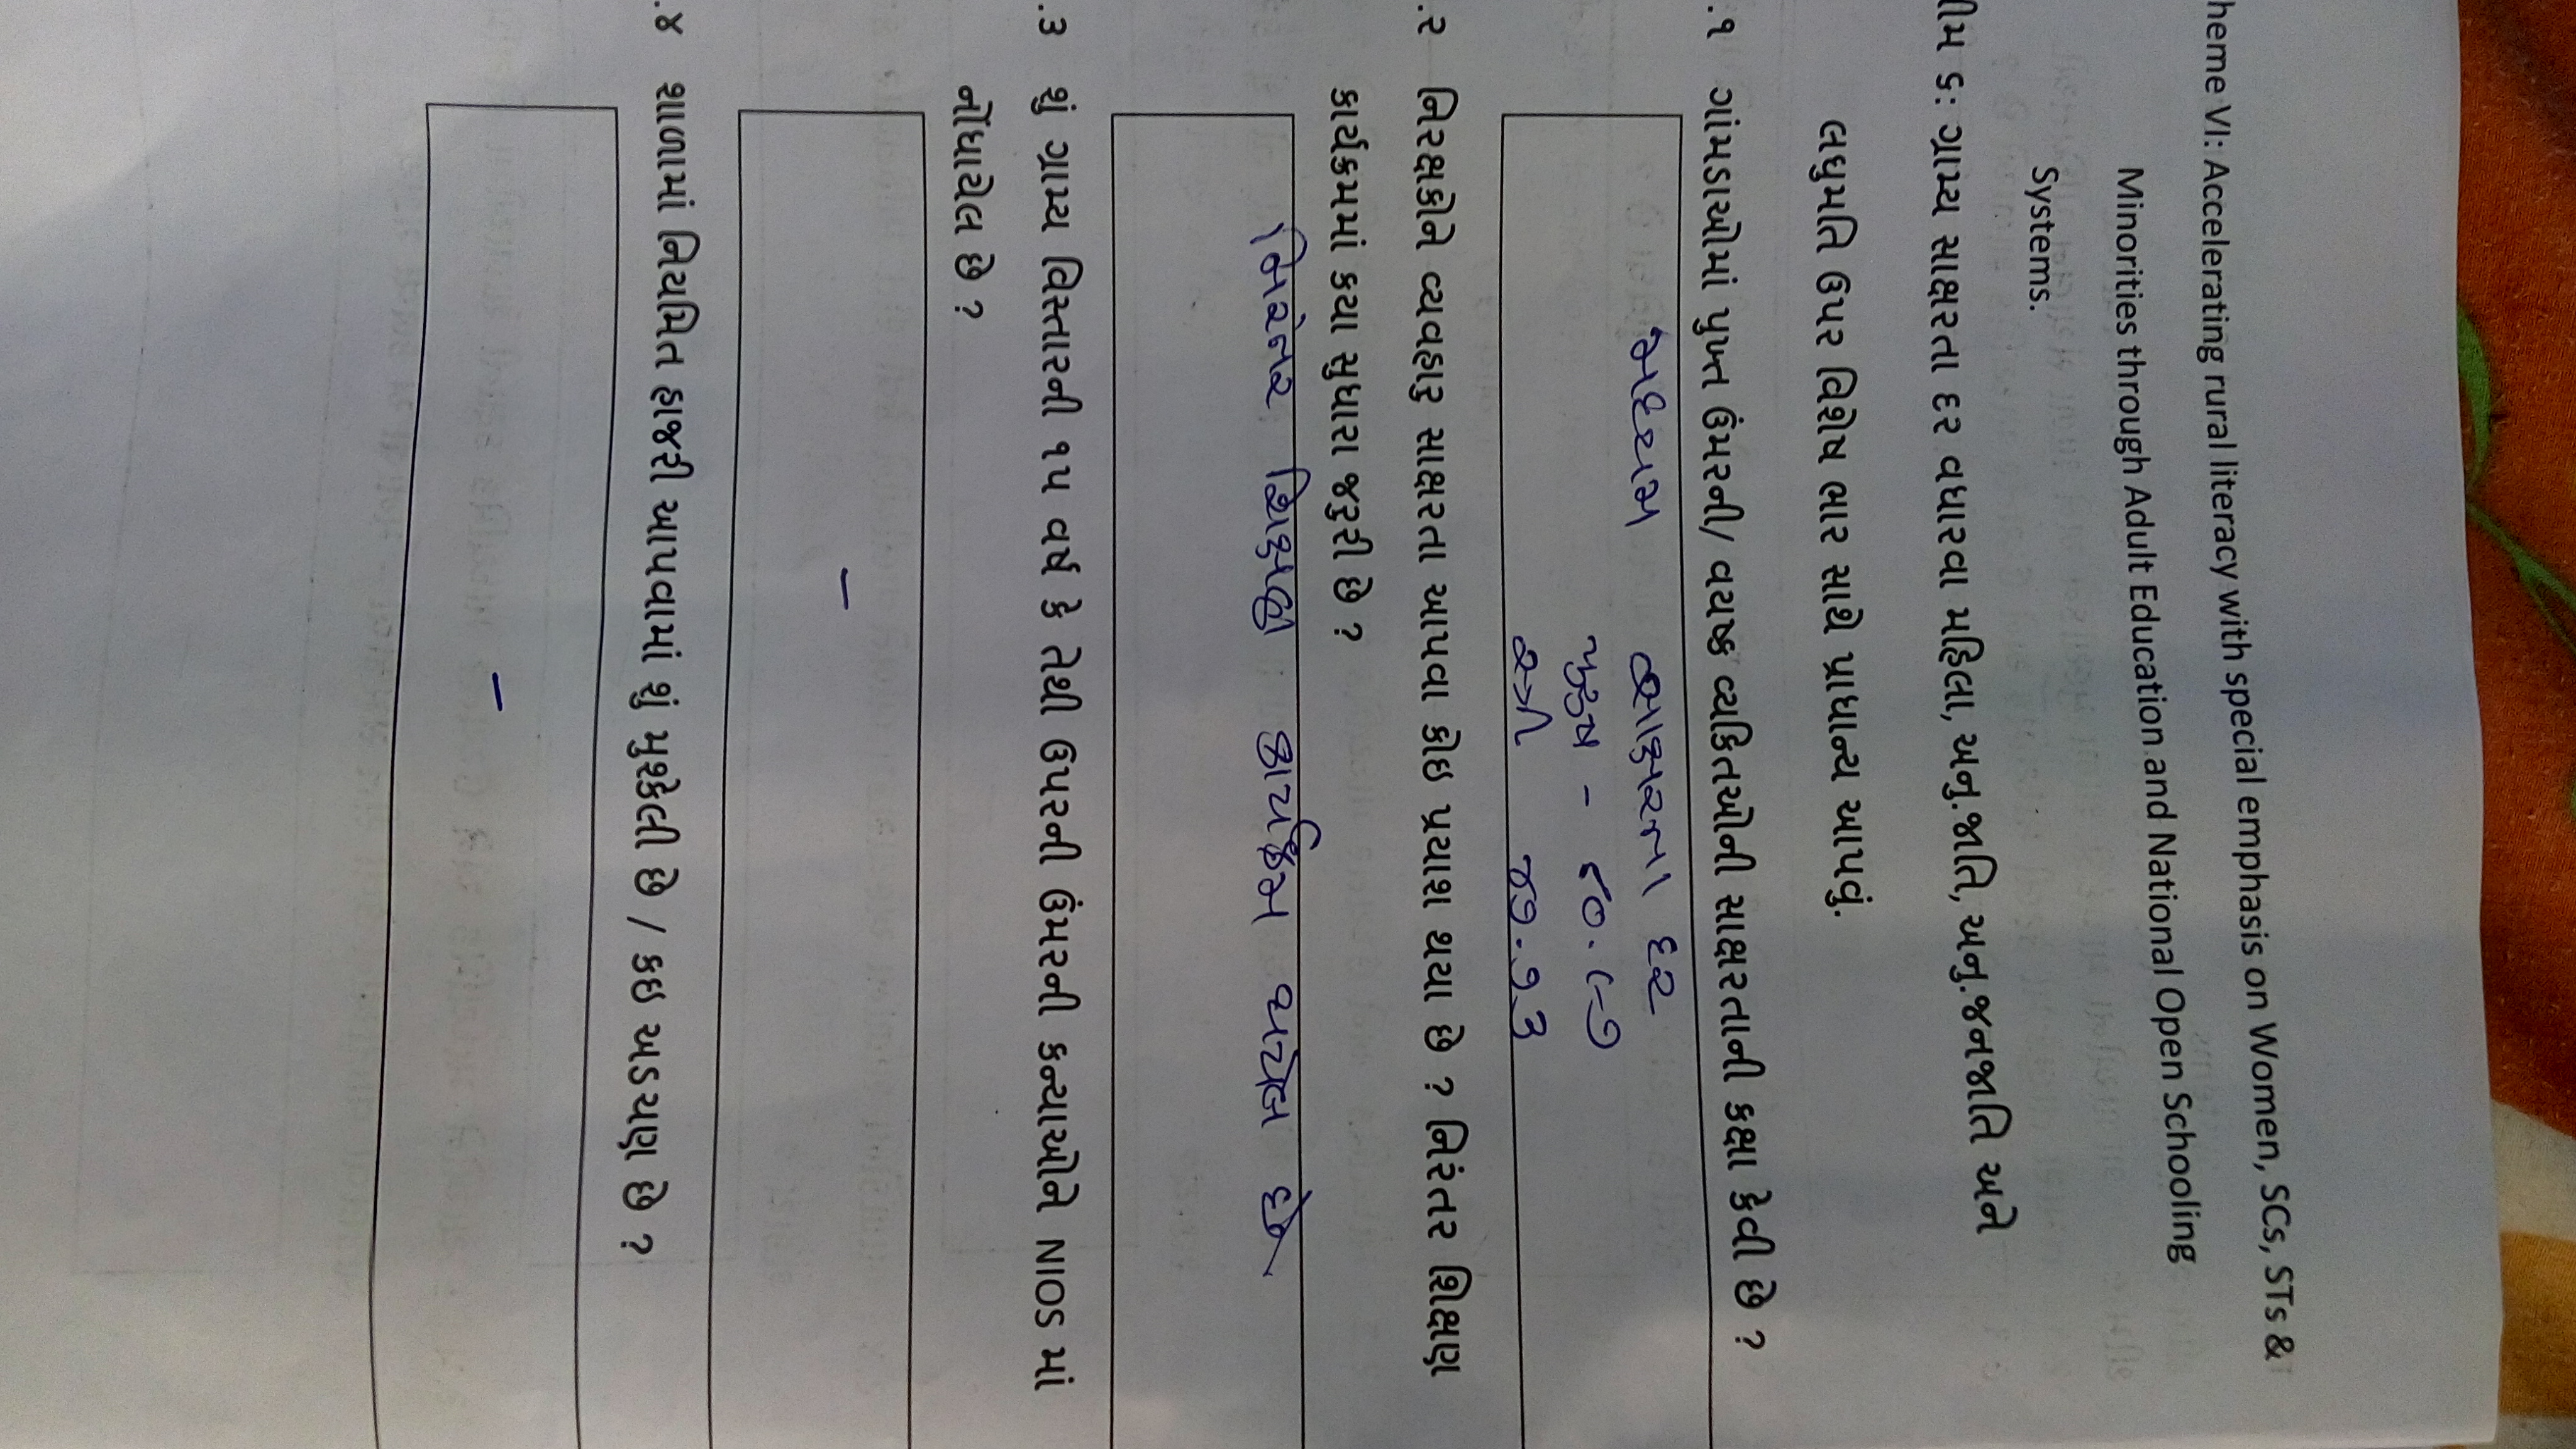 heme VI: Accelerating rural literacy with special emphasis on Women, SCs, STs &
Minorities through Adult Education and National Open Schooling
Systems.
ીમ ૬: ગ્રામ્ય સાક્ષરતા દર વધારવા મહિલા, અનુ.જાતિ, અનુ.જનજાતિ અને
લઘુમતિ ઉપર વિશેષ ભાર સાથે પ્રાધાન્ય આપવું.
.૧ ગાંમડાઓમાં પુખ્ત ઉંમરની/ વયષ્ક વ્યકિતઓની સાક્ષરતાની કક્ષા કેવી છે ?
મધ્યમ સાક્ષરતા દર
પુરુષ - ૬૦.૮૭
સ્ત્રી ૪૭.૭૩
.૨ નિરક્ષકોને વ્યવહારુ સાક્ષરતા આપવા કોઇ પ્રયાશ થયા છે ? નિરંતર શિક્ષણ
કાર્યક્રમમાં કયા સુધારા જરૂરી છે ?
નિરંતર શિક્ષણ કાર્યક્રમ થયેલ છે
.૩ શું ગ્રામ્ય વિસ્તારની ૧૫ વર્ષ કે તેથી ઉપરની ઉંમરની કન્યાઓને NIOS માં
નોંધાયેલ છે ?
–
.૪ શાળામાં નિયમિત હાજરી આપવામાં શું મુશ્કેલી છે / કઇ અડચણ છે ?
–